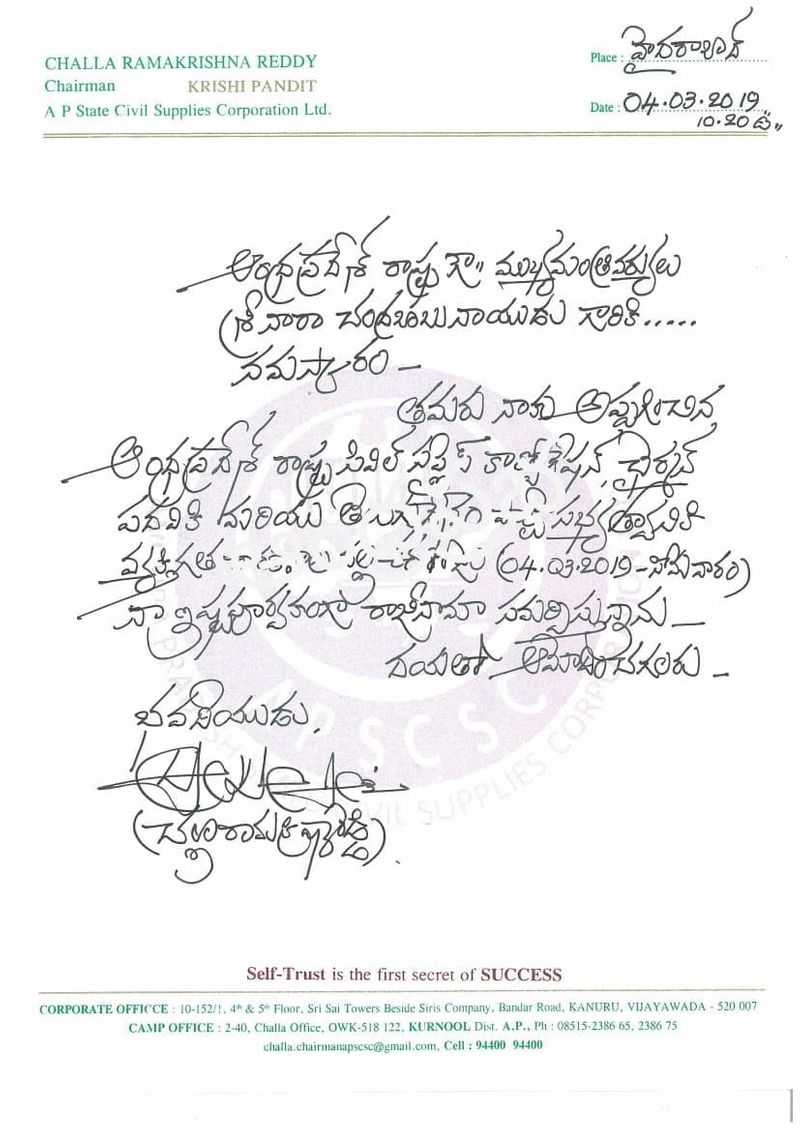 CHALLA RAMAKRISHNA REDDY
Chairman KRISHI PANDIT
A P State Civil Supplies Corporation Ltd.
Place : హైదరాబాద్
Date : 04.03.2019
10.20 ఉ॥
ఆంధ్రప్రదేశ్ రాష్ట్ర గౌ॥ ముఖ్యమంత్రివర్యులు
శ్రీ నారా చంద్రబాబునాయుడు గారికి.....
నమస్కారం -
తమరు నాకు అప్పగించిన
ఆంధ్రప్రదేశ్ రాష్ట్ర సివిల్ సప్లైస్ కార్పోరేషన్ ఛైర్మన్
పదవికి మరియు తెలుగుదేశం పార్టీ సభ్యత్వానికి
వ్యక్తిగత (04.03.2019 - సోమవారం)
నా ఇష్టపూర్వకంగా రాజీనామా సమర్పిస్తున్నాను -
దయతో ఆమోదించగలరు -
భవదీయుడు,
(చల్లా రామకృష్ణారెడ్డి).
APSCSC
CIVIL SUPPLIES CORPORATION
Self-Trust is the first secret of SUCCESS
CORPORATE OFFICCE : 10-152/1, 4th & 5th Floor, Sri Sai Towers Beside Siris Company, Bandar Road, KANURU, VIJAYAWADA - 520 007
CAMP OFFICE : 2-40, Challa Office, OWK-518 122, KURNOOL Dist. A.P., Ph : 08515-2386 65, 2386 75
challa.chairmanapscsc@gmail.com, Cell : 94400 94400